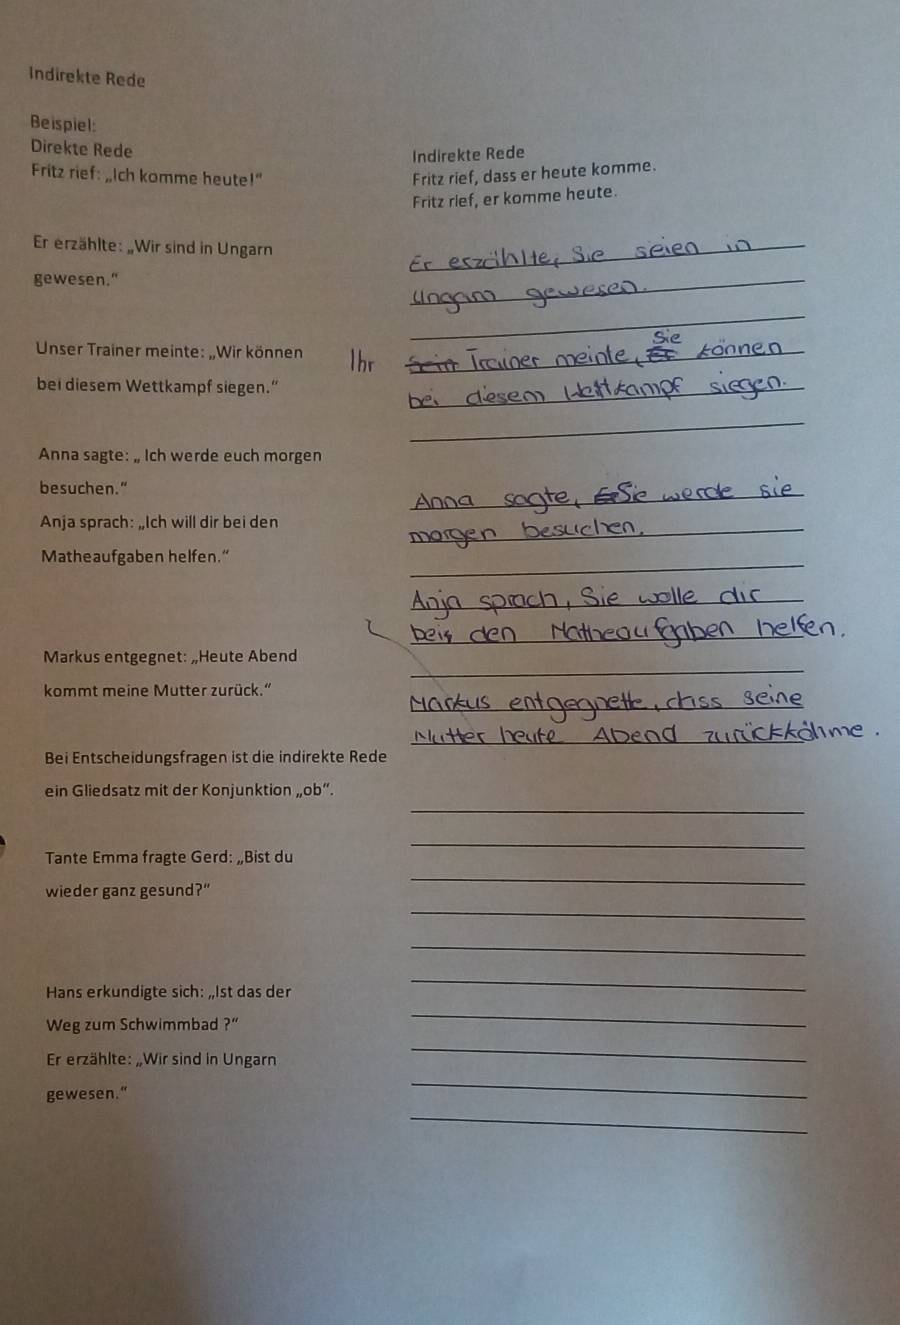 Indirekte Rede
Beispiel:
Direkte Rede
Indirekte Rede
Fritz rief: „Ich komme heute!“
Fritz rief, dass er heute komme.
Fritz rief, er komme heute.
Er erzählte: „Wir sind in Ungarn
gewesen.“
Er erzählte, Sie seien in
Ungarn gewesen.
Unser Trainer meinte: „Wir können
bei diesem Wettkampf siegen.“
Ihr Sein Trainer meinte, Er Sie können
bei diesem Wettkampf siegen.
Anna sagte: „ Ich werde euch morgen
besuchen.“
Anna sagte, Er Sie werde sie
morgen besuchen.
Anja sprach: „Ich will dir bei den
Matheaufgaben helfen.“
Anja sprach, Sie wolle dir
bei den Matheaufgaben helfen.
Markus entgegnet: „Heute Abend
kommt meine Mutter zurück.“
Markus entgegnette, dass seine
Mutter heute Abend zurückkähme.
Bei Entscheidungsfragen ist die indirekte Rede
ein Gliedsatz mit der Konjunktion „ob“.
Tante Emma fragte Gerd: „Bist du
wieder ganz gesund?“
Hans erkundigte sich: „Ist das der
Weg zum Schwimmbad ?“
Er erzählte: „Wir sind in Ungarn
gewesen.“